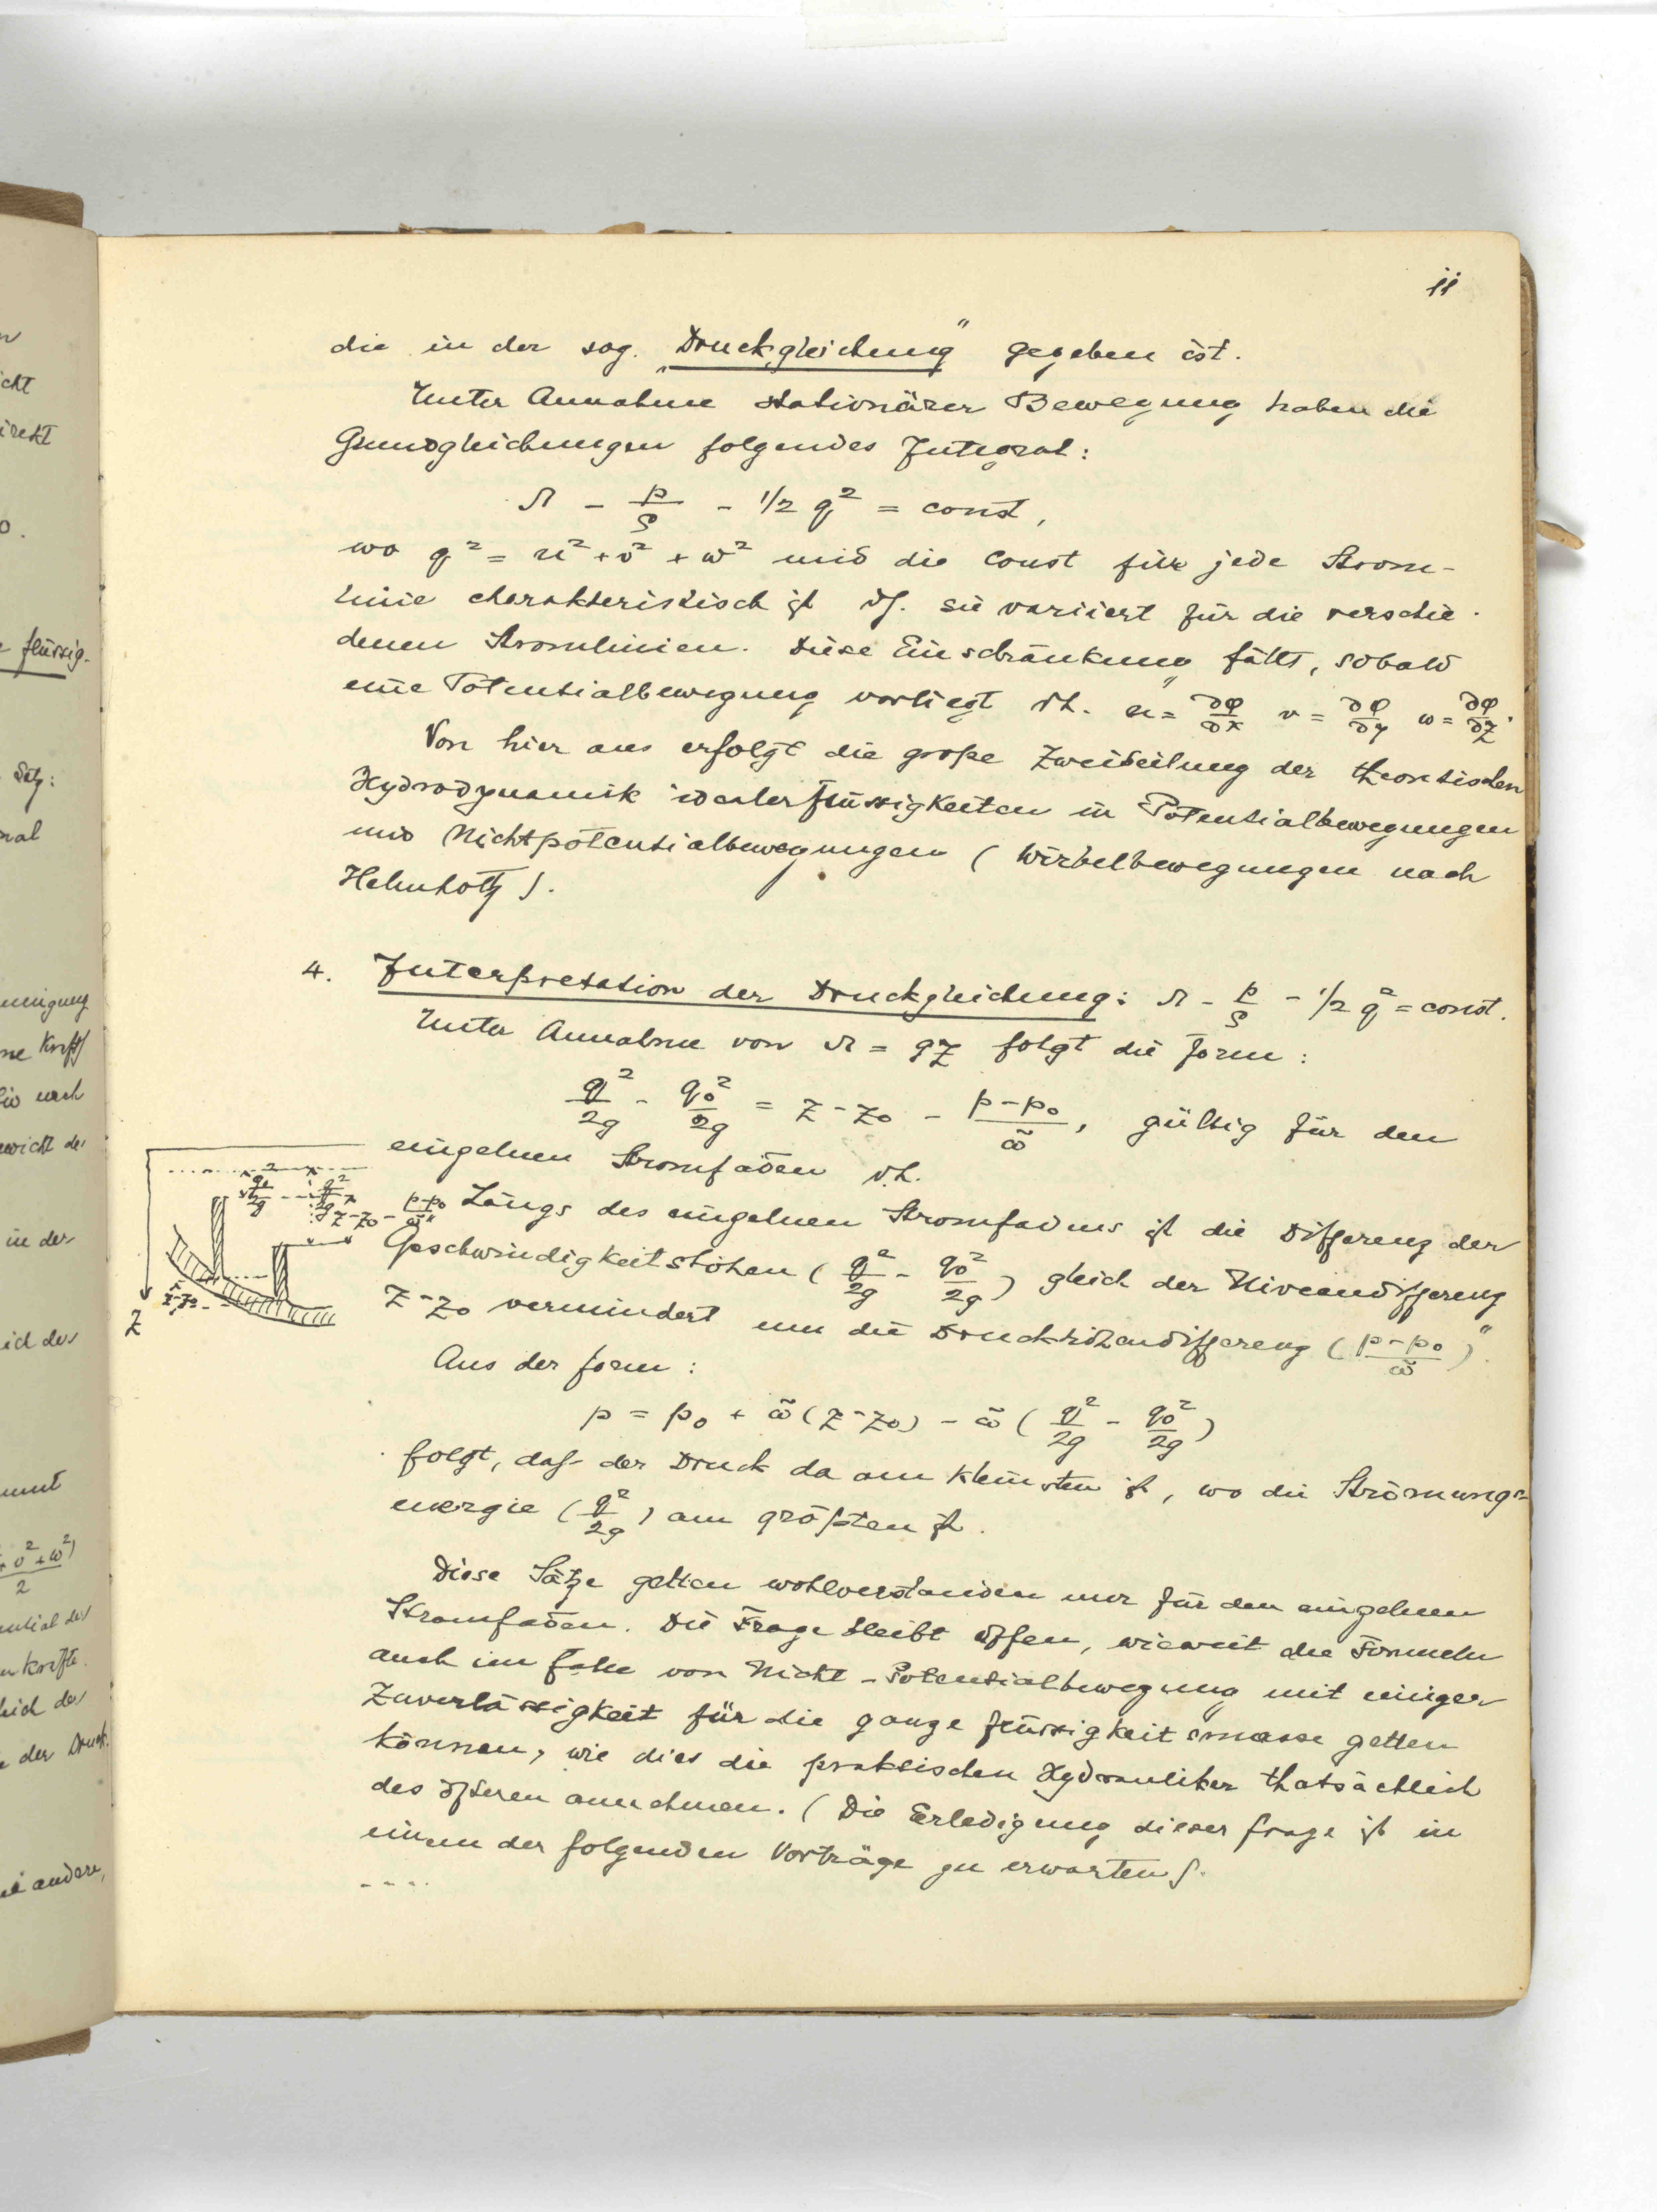 11
die in der sog. „Druckgleichung" gegeben ist.
Unter Annahme stationärer Bewegung haben die
Grundgleichungen folgendes Integral:
Ω - p/ρ - 1/2 q² = const,
wo q² = u² + v² + w² und die Const für jede Strom-
linie charakteristisch ist d.h. sie variiert für die verschie-
denen Stromlinien. Diese Einschränkung fällt, sobald
eine Potentialbewegung vorliegt d.h. u = ∂φ/∂x v = ∂φ/∂y w = ∂φ/∂z.
Von hier aus erfolgt die große Zweiteilung der theoretischen
Hydrodynamik idealer Flüssigkeiten in Potentialbewegungen
und Nichtpotentialbewegungen (Wirbelbewegungen nach
Helmholtz).
4. Interpretation der Druckgleichung: Ω - p/ρ - 1/2 q² = const.
Unter Annahme von Ω = gz folgt die Form:
q²/2g - q₀²/2g = z - z₀ - (p-p₀)/ω̃, gültig für den
einzelnen Stromfaden d.h.
„Längs des einzelnen Stromfadens ist die Differenz der
Geschwindigkeitshöhen (q²/2g - q₀²/2g) gleich der Niveaudifferenz
z - z₀ vermindert um die Druckhöhendifferenz ((p-p₀)/ω̃)".
q₀²/2g
q²/2g
z-z₀ - (p-p₀)/ω̃
z-z₀
z
Aus der Form:
p = p₀ + ω̃(z - z₀) - ω̃(q²/2g - q₀²/2g)
folgt, daß der Druck da am kleinsten ist, wo die Strömungs-
energie (q²/2g) am größten ist.
Diese Sätze gelten wohlverstanden nur für den einzelnen
Stromfaden. Die Frage bleibt offen, wieweit die Formeln
auch im Falle von Nicht-Potentialbewegung mit einiger
Zuverlässigkeit für die ganze Flüssigkeitsmasse gelten
können, wie dies die praktischen Hydrauliker thatsächlich
des öfteren annehmen. (Die Erledigung dieser Frage ist in
einem der folgenden Vorträge zu erwarten).
- - - -
cht
irekt
flüssig-
Satz:
nal
ne Kraft
nach
ewicht der
in der
ich der
mmt
+ v² + w²)
2
ential der
kräfte.
eich der
der Druck.
andere,